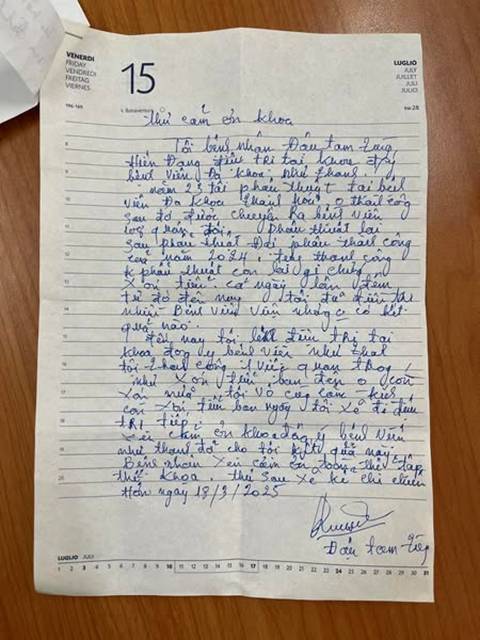 VENERDI
FRIDAY
VENDREDI
FREITAG
VIERNES
15
LUGLIO
JULY
JUILLET
JULI
JULIO
196-169
s. Bonaventura
sw. 28
Thư cảm ơn khoa
Tôi bệnh nhân Đậu tam
Hiện Đang điều trị tại khoa đ/y
bệnh viện Đa khoa, như thanh
năm 23 tôi phẩu thuật tại bệnh
viện Đa khoa thanh hóa, o thành công
sau đó được chuyển ra bệnh viện
quân đội phẩu thuật lại
sau phẩu thuật Đại phẩu thành công
năm 2024, thành công
k phẩu thuật còn lại gì chứng
xón tiểu cả ngày lẫn đêm
từ đó đến nay tôi đã điều trị
nhiều Bệnh viện nhưng có kết
quả nào.
Đến nay tôi điều trị tại
khoa đông y bệnh viện như thanh
tôi thành công 1 việc quan trọng
như xón tiểu, ban đêm o còn
xón nữa tôi vô cùng cảm kích
còn xón tiểu ban ngày tôi sẽ đi điều
trị tiếp
xin cảm ơn khoa đông y bệnh viện
như thanh đã cho tôi kết quả này
Bệnh nhân xin cảm ơn tập
thể khoa. thư sau sẽ kể chi
Hơn ngày 18/3/2025
Đậu tam
LUGLIO JULI
1 2 3 4 5 6 7 8 9 10 11 12 13 14 15 16 17 18 19 20 21 22 23 24 25 26 27 28 29 30 31